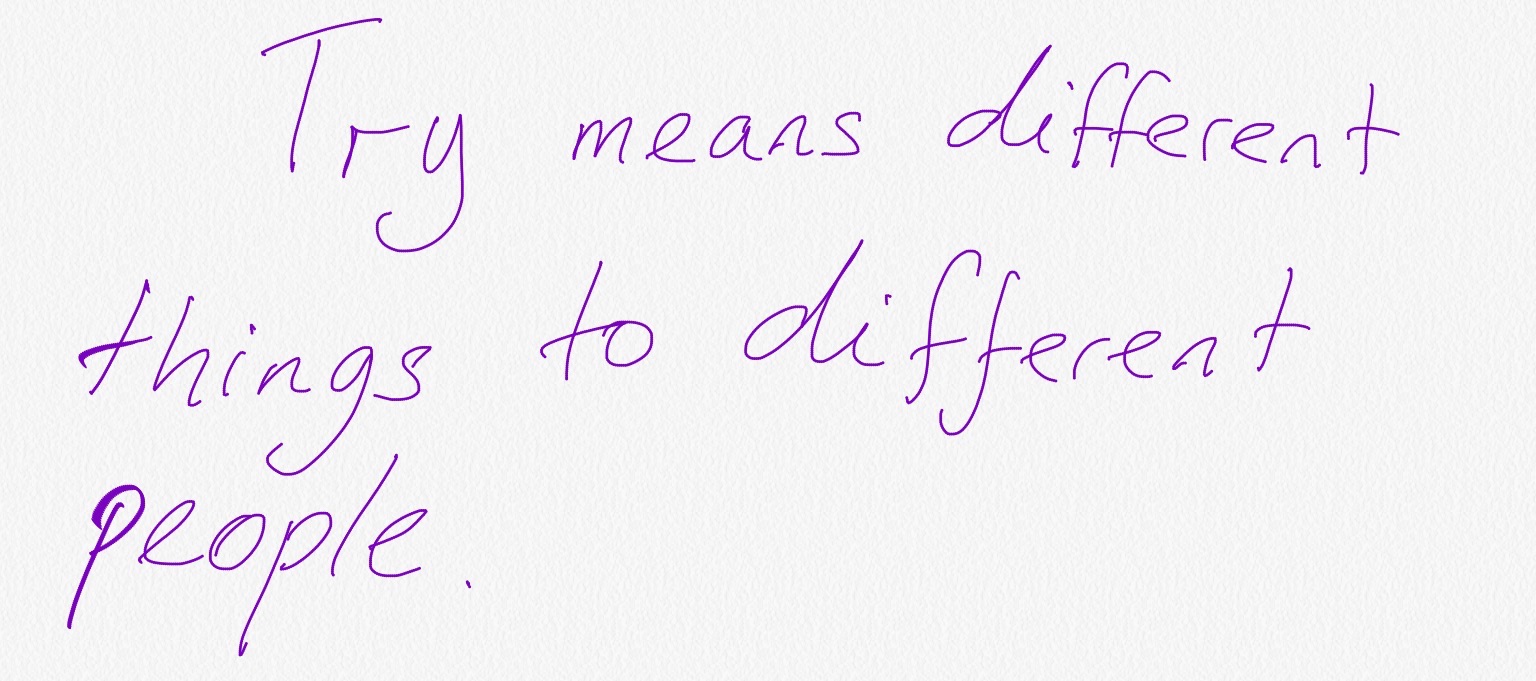 Try means different
things to different
people.